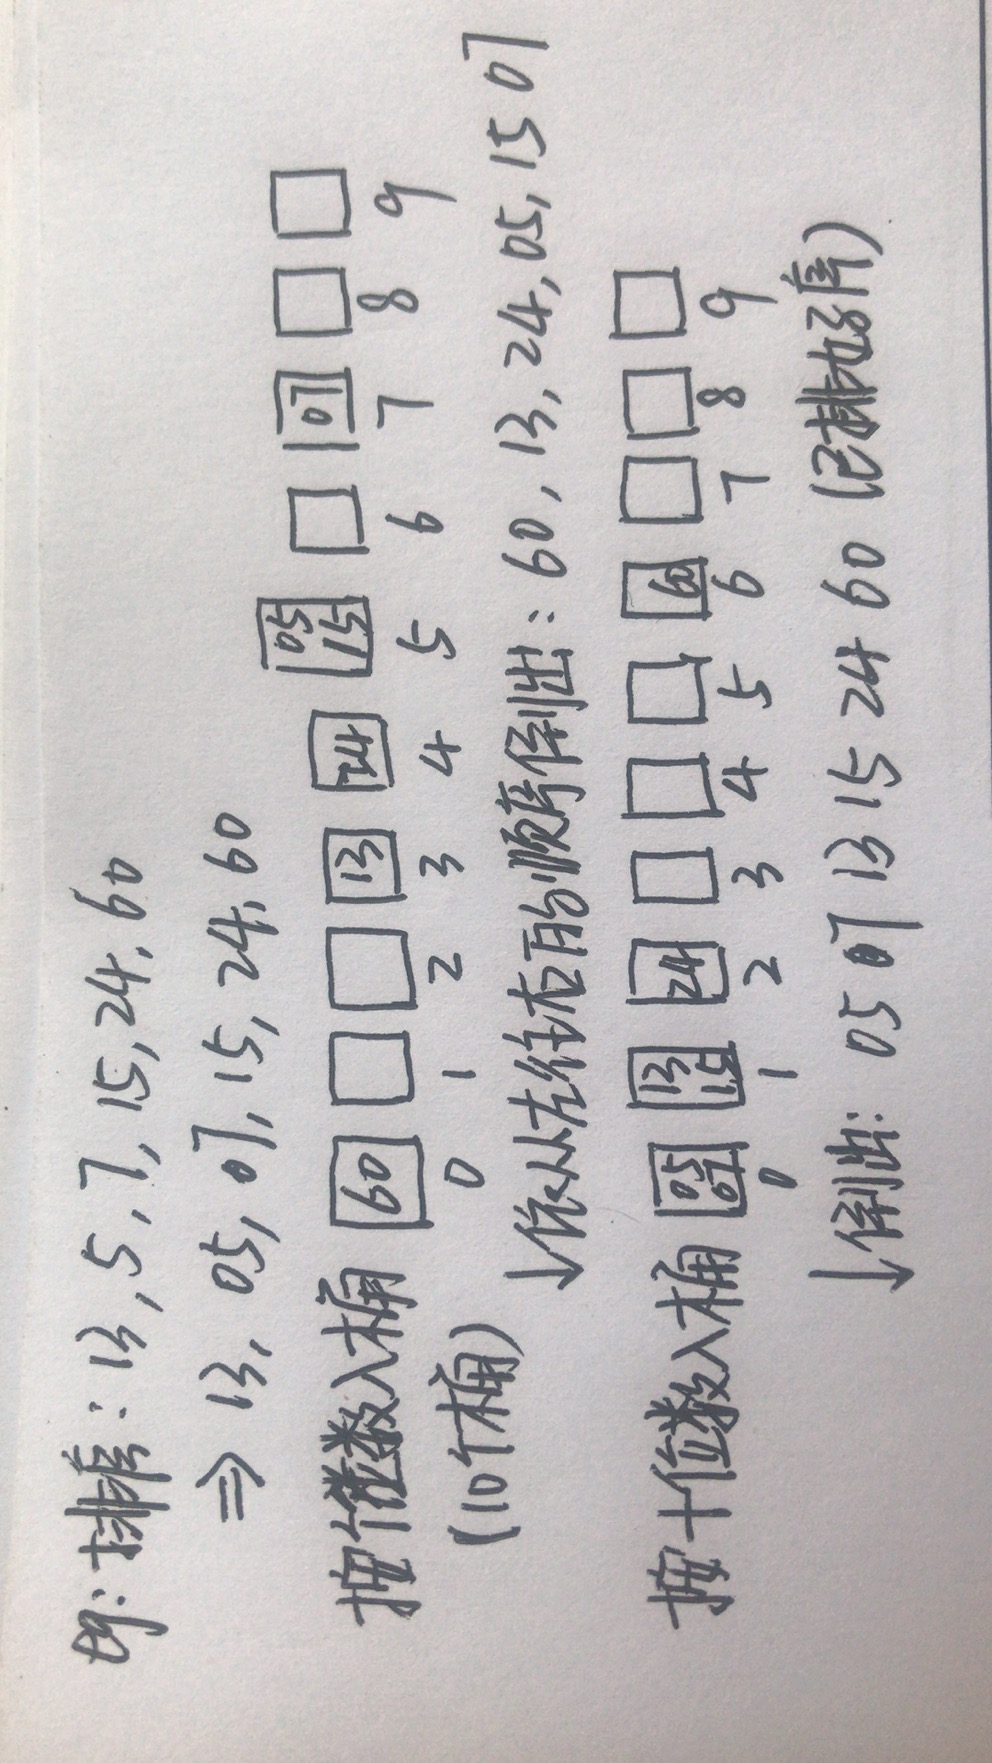 eg: 排序: 13, 5, 7, 15, 24, 60
⇒ 13, 05, 07, 15, 24, 60
按个位数入桶 60 13 24 05 15 07
(10个桶) 0 1 2 3 4 5 6 7 8 9
↓依从左往右的顺序倒出: 60, 13, 24, 05, 15 07
按十位数入桶 05 07 13 15 24 60
0 1 2 3 4 5 6 7 8 9
↓倒出: 05 07 13 15 24 60 (已排好序)